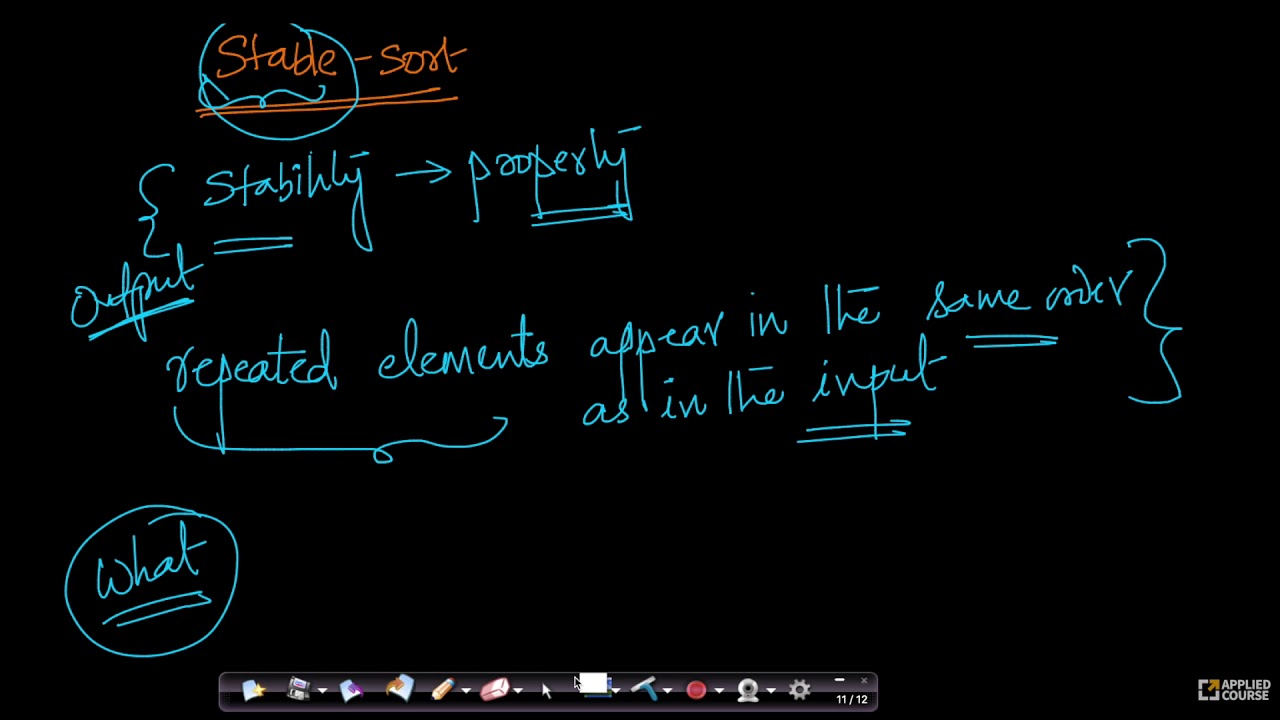 Stable-sort
{ Stability → property
Output
repeated elements appear in the same order }
as in the input
What
11 / 12
APPLIED
COURSE